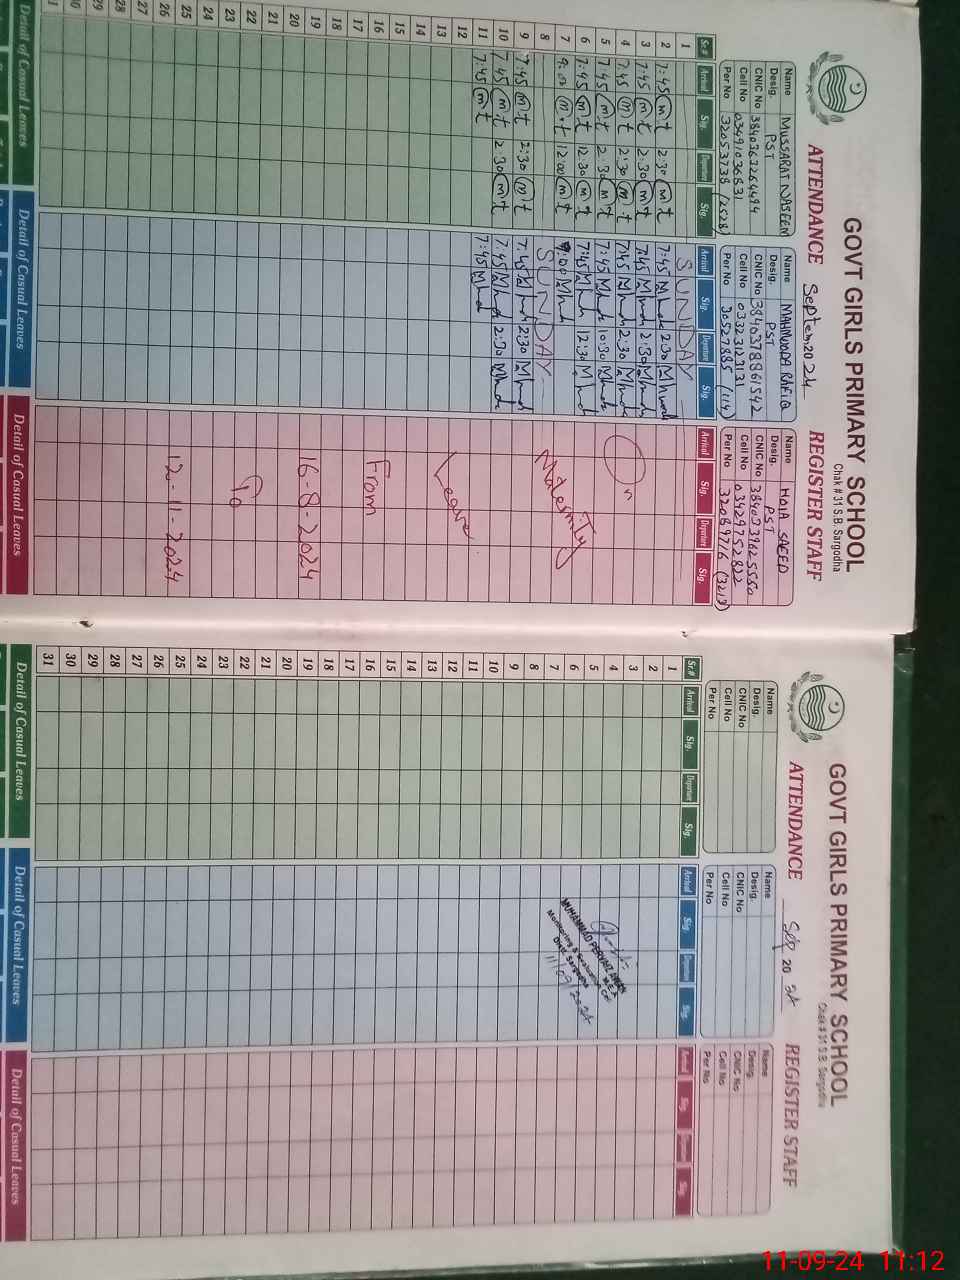 GOVT GIRLS PRIMARY SCHOOL
Chak # 31 S.B. Sargodha
ATTENDANCE September 2024 REGISTER STAFF
Name MUSSARAT NASEEM
Desig. PST
CNIC No 3840363264494
Cell No 03491036831
Per No 32053738 (2528)
Name MAHMOODA RAFIQ
Desig. PST
CNIC No 3840378861542
Cell No 03323123131
Per No 30527885 (114)
Name HDIA SAEED
Desig. PST
CNIC No
Cell No 03429752822
Per No 32089716 (3213)
Sr.# Arrival Sig. Departure Sig. Arrival Sig. Departure Sig. Arrival Sig. Departure Sig.
1 SUNDAY
2 7:45 mt 2:30 mt 7:45 2:30
3 7:45 mt 2:30 mt 7:45 2:30
4 7:45 mt 2:30 mt 7:45 2:30
5 7:45 mt 2:30 mt 7:45 10:30
6 7:45 mt 12:30 mt 7:45 12:30
7 9:00 mt 12:00 mt 9:00
8 SUNDAY
9 7:45 mt 2:30 mt 7:45 2:30
10 7:45 mt 2:30 mt 7:45 2:30
11 7:45 mt 7:45
12
13
14
15
16
17
18
19
20
21
22
23
24
25
26
27
28
29
30
31
On
Maternity
Leave
From
16-8-2024
To
12-11-2024
Detail of Casual Leaves Detail of Casual Leaves Detail of Casual Leaves
GOVT GIRLS PRIMARY SCHOOL
Chak # 31 S.B. Sargodha
ATTENDANCE Sep 2024 REGISTER STAFF
Name
Desig.
CNIC No
Cell No
Per No
Name
Desig.
CNIC No
Cell No
Per No
Name
Desig.
CNIC No
Cell No
Per No
Sr.# Arrival Sig. Departure Sig. Arrival Sig. Departure Sig. Arrival Sig. Departure Sig.
1
2
3
4
5
6
7
8
9
10
11
12
13
14
15
16
17
18
19
20
21
22
23
24
25
26
27
28
29
30
31
MUHAMMAD PERVAIZ
M.E.A
Monitoring & Evaluation Cell
Distt. Sargodha
11/09/2024
Detail of Casual Leaves Detail of Casual Leaves Detail of Casual Leaves
11-09-24 11:12